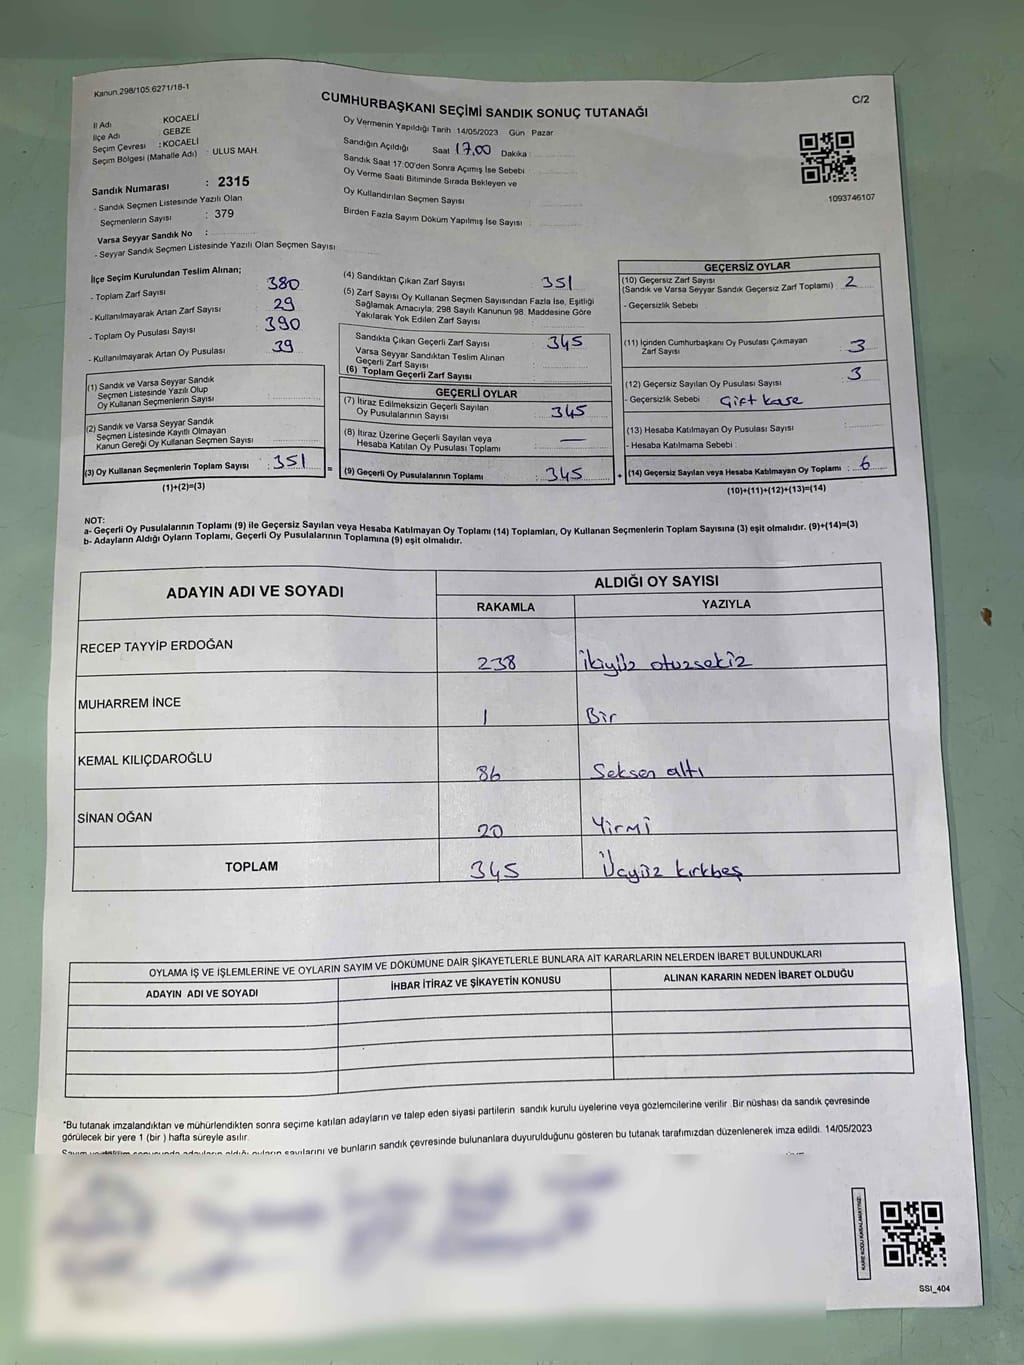 Kanun.298/105:6271/18-1
CUMHURBAŞKANI SEÇİMİ SANDIK SONUÇ TUTANAĞI
C/2
İl Adı KOCAELİ
İlçe Adı : GEBZE
Seçim Çevresi : KOCAELİ
Seçim Bölgesi (Mahalle Adı) : ULUS MAH.
Sandık Numarası : 2315
- Sandık Seçmen Listesinde Yazılı Olan
Seçmenlerin Sayısı : 379
Varsa Seyyar Sandık No :
- Seyyar Sandık Seçmen Listesinde Yazılı Olan Seçmen Sayısı
Oy Vermenin Yapıldığı Tarih 14/05/2023 Gün Pazar
Sandığın Açıldığı Saat 17.00 Dakika :
Sandık Saat 17:00'den Sonra Açımış İse Sebebi
Oy Verme Saati Bitiminde Sırada Bekleyen ve
Oy Kullandırılan Seçmen Sayısı
Birden Fazla Sayım Döküm Yapılmış İse Sayısı
1093746107
İlçe Seçim Kurulundan Teslim Alınan;
- Toplam Zarf Sayısı : 380
- Kullanılmayarak Artan Zarf Sayısı : 29
- Toplam Oy Pusulası Sayısı : 390
- Kullanılmayarak Artan Oy Pusulası : 39
(1) Sandık ve Varsa Seyyar Sandık
Seçmen Listesinde Yazılı Olup
Oy Kullanan Seçmenlerin Sayısı
(2) Sandık ve Varsa Seyyar Sandık
Seçmen Listesinde Kayıtlı Olmayan
Kanun Gereği Oy Kullanan Seçmen Sayısı
(3) Oy Kullanan Seçmenlerin Toplam Sayısı : 351
(1)+(2)=(3)
=
(4) Sandıktan Çıkan Zarf Sayısı : 351
(5) Zarf Sayısı Oy Kullanan Seçmen Sayısından Fazla İse, Eşitliği
Sağlamak Amacıyla; 298 Sayılı Kanunun 98. Maddesine Göre
Yakılarak Yok Edilen Zarf Sayısı :
Sandıkta Çıkan Geçerli Zarf Sayısı : 345
Varsa Seyyar Sandıktan Teslim Alınan
Geçerli Zarf Sayısı
(6) Toplam Geçerli Zarf Sayısı
GEÇERLİ OYLAR
(7) İtiraz Edilmeksizin Geçerli Sayılan
Oy Pusulalarının Sayısı : 345
(8) İtiraz Üzerine Geçerli Sayılan veya
Hesaba Katılan Oy Pusulası Toplamı : —
(9) Geçerli Oy Pusulalarının Toplamı : 345
+
GEÇERSİZ OYLAR
(10) Geçersiz Zarf Sayısı
(Sandık ve Varsa Seyyar Sandık Geçersiz Zarf Toplamı) : 2
- Geçersizlik Sebebi :
(11) İçinden Cumhurbaşkanı Oy Pusulası Çıkmayan
Zarf Sayısı : 3
(12) Geçersiz Sayılan Oy Pusulası Sayısı : 3
- Geçersizlik Sebebi : Çift kase
(13) Hesaba Katılmayan Oy Pusulası Sayısı :
- Hesaba Katılmama Sebebi :
(14) Geçersiz Sayılan veya Hesaba Katılmayan Oy Toplamı : 6
(10)+(11)+(12)+(13)=(14)
NOT:
a- Geçerli Oy Pusulalarının Toplamı (9) ile Geçersiz Sayılan veya Hesaba Katılmayan Oy Toplamı (14) Toplamları, Oy Kullanan Seçmenlerin Toplam Sayısına (3) eşit olmalıdır. (9)+(14)=(3)
b- Adayların Aldığı Oyların Toplamı, Geçerli Oy Pusulalarının Toplamına (9) eşit olmalıdır.
ADAYIN ADI VE SOYADI
ALDIĞI OY SAYISI
RAKAMLA YAZIYLA
RECEP TAYYİP ERDOĞAN 238 ikiyüz otuzsekiz
MUHARREM İNCE 1 Bir
KEMAL KILIÇDAROĞLU 86 Seksen altı
SİNAN OĞAN 20 Yirmi
TOPLAM 345 Üçyüz kırkbeş
OYLAMA İŞ VE İŞLEMLERİNE VE OYLARIN SAYIM VE DÖKÜMÜNE DAİR ŞİKAYETLERLE BUNLARA AİT KARARLARIN NELERDEN İBARET BULUNDUKLARI
ADAYIN ADI VE SOYADI İHBAR İTİRAZ VE ŞİKAYETİN KONUSU ALINAN KARARIN NEDEN İBARET OLDUĞU
*Bu tutanak imzalandıktan ve mühürlendikten sonra seçime katılan adayların ve talep eden siyasi partilerin sandık kurulu üyelerine veya gözlemcilerine verilir .Bir nüshası da sandık çevresinde
görülecek bir yere 1 (bir ) hafta süreyle asılır.
ve bunların sandık çevresinde bulunanlara duyurulduğunu gösteren bu tutanak tarafımızdan düzenlenerek imza edildi. 14/05/2023
KARE KODU KARALAMAYINIZ!
SSI_404